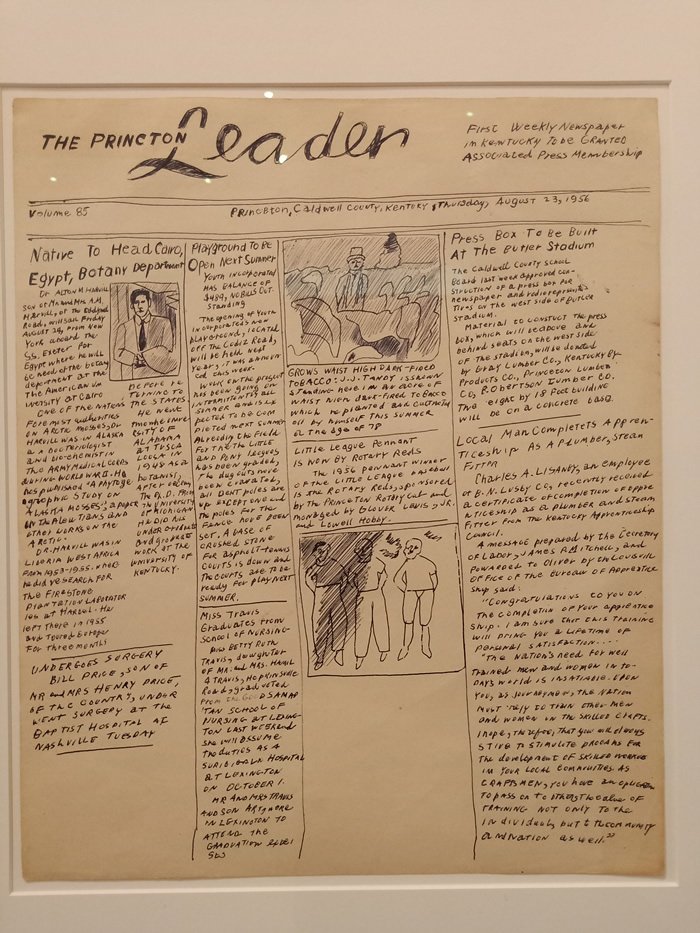 THE PRINCTON Leader
First Weekly Newspaper
in Kentucky To be GRANTED
Associated Press Membership
Volume 85
Princeton, Caldwell County, Kentuky, Thursday, August 23, 1956
Native To Head Cairo,
Egypt, Botany Department
son of Mr and Mrs A.M.
Road, will sail Friday
August 24, from New
York aboard the
SS. Exeter for
Egypt where he will
be head of the botany
department at the
The American un
iversity at Cairo
ONE OF THE NATION'S
Foremost authorities
on ARCTIC MOSSES, DR
HARVILL WAS IN ALASKA
as a BACTERIOLOGIST
and biochemist in
The ARMY Medical CORPS
DURING WORLD WAR II. He
has published "A PHYTOGE
OGRAPHIC STUDY ON
ALASKA MOSSES", a paper
ON THE ALEUTIANS AND
OTHER WORKS ON THE
ARCTIC.
DR. HARVILL WAS IN
LIBERIA WEST AFRICA
FROM 1953-1955. WHERE
he did RESEARCH FOR
THE FIRESTONE
PLANTATION LABORATOR
ies at HARBEL. He
left There in 1955
and Toured Europe
FOR Three months
BEFORE RE
TURNING TO
THE STATES.
He went
to the
UNIVER
SITY OF
ALABAMA
AT TUSCA
LOOSA IN
1948 as a
botanist,
THE UNIVERSITY
OF MICHIGAN
HE DID HIS
UNDER GRADUATE
WORK AT THE
UNIVERSITY OF
KENTUCKY.
UNDERGOES SURGERY
BILL PRICE, SON OF
MR and MRS HENRY PRICE,
OF THE COUNTRY, UNDER
WENT SURGERY AT THE
BAPTIST HOSPITAL AT
NASHVILLE TUESDAY
Playground To Be
Open Next Summer
YOUTH INCORPORATED
HAS BALANCE OF
$489, NO BILLS OUT-
Standing
The opening of Youth
incorporateds new
playground, located
off THE Cadiz Road,
will be held next
year, it was announ
ced this week.
WORK on the project
has been going on
intermittently all
SUMMER and is EX
PECTED TO BE COM
PLETED next summer
Already the Field
FOR THE Little
AND PONY leagues
has been graded,
The dugouts have
been erected,
all light poles are
up except one and
the poles for the
Fence have been
set. A base of
crushed stone
FOR asphalt tennis
courts is down and
The courts are to be
ready for play next
SUMMER.
Miss Travis
Graduates From
School of NURSING
MISS BETTY RUTH
TRAVIS, daughter
OF MR. and MRS. HAMIL
TRAVIS, HOPKINSVILLE
Road, graduated
FROM THE GOOD SAMAR
ITAN SCHOOL OF
NURSING AT LEXING-
TON LAST WEEKEND
She will assume
The duties as a
at HOSPITAL
at LEXINGTON
ON OCTOBER 1.
MR AND MRS TRAVIS
AND SON ARE
IN LEXINGTON TO
ATTEND the
GRADUATION EXERI
SES
GROWS WAIST HIGH DARK-FIRED
TOBACCO: J.J. TANDY IS SHOWN
STANDING here in an acre of
WAIST HIGH DARK-FIRED TOBACCO
which he planted and cultivated
all by himself THIS SUMMER
at the age of 78
Little League Pennant
IS Now By Rotary Reds
The 1956 pennant winner
OF THE Little League baseball
is the Rotary Reds, sponsored
by the PRINCETON ROTARY Club and
managed by GLOVER LEWIS, JR.
and Lowell Hobby.
Press Box To Be Built
At The Butler Stadium
The Caldwell County School
Board last week approved con-
struction of a press box for
newspaper and radio representa
tives on the west side of Butler
stadium.
Material to construct the press
box, which will be above and
behind seats on the west side
of the stadium, will be donated
by Gray Lumber Co, Kentucky By-
Products Co., Princeton Lumber
Co, Robertson Lumber Co.
The eight by 18 feet building
will be on a concrete base.
Local Man Completets Appren-
ticeship As A Plumber, Steam
Fitter
Charles A. Lisanby, an employee
of B.N. Lusby Co, recently received
a certificate of completion of appre
nticeship as a plumber and steam
fitter from the Kentucky Apprenticeship
Council.
A message prepared by the Secretary
of Labor, James P. Mitchell, and
forwarded to Oliver by the Louisville
Office of the Bureau of Apprentice
ship said:
"Congratulations to you on
the completion of your apprentice
ship. I am sure that this training
will bring you a lifetime of
personal satisfaction....
"The nation's need for well
trained men and women in to-
days world is insatiable. Upon
you, as journeymen, the nation
must rely to train other men
and women in the skilled crafts.
I hope, therefore, that you will always
strive to stimulate programs for
the development of skilled workers
in your local communities. As
craftsmen, you have an obligation
to pass on to others the value of
training not only to the
individual, but to the community
and nation as well."